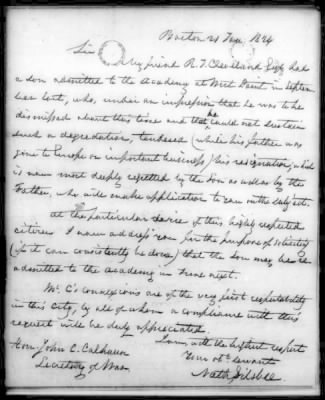 Boston 21 Jany 1824
Sir
My friend R. J. Cleveland Esqr had
a son admitted to the Academy at West Point in Septem
ber last, who, under an impression that he was to be
dismissed about this time and that he could not sustain
such a degredation, tendered (while his father was
gone to Europe on important business) his resignation, which
is now most deeply regretted by the Son as well as by the
Father, who will make application to you on the subject.
At the particular desire of this highly respected
citizen I now address you for the purpose of soliciting
(if it can consistently be done) that the son may be re
admitted to the Academy in June next.
Mr. C's connexions are of the very first respectability
in this City, by all of whom a compliance with this
request will be duly appreciated.
I am, with the highest respect
Your obt servant
Nathl Silsbee
Hon: John C. Calhoun
Secretary of War.